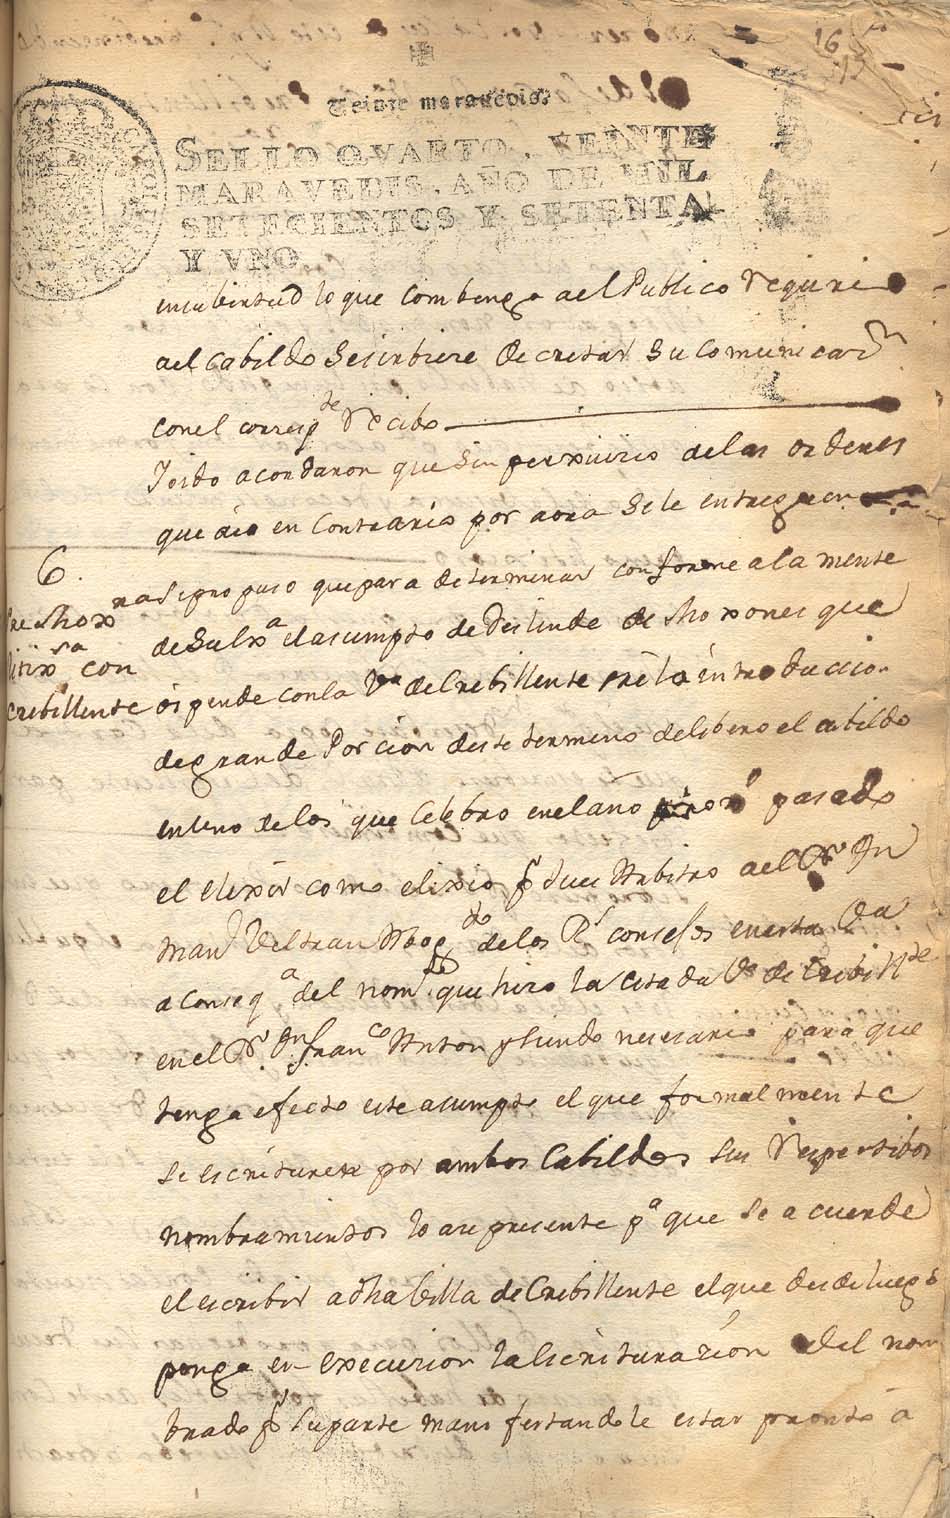 16
Veinte maravedis.
SELLO QVARTO, VEINTE
MARAVEDIS, AÑO DE MIL
SETECIENTOS Y SETENTA
Y VNO
ensubirtud lo que combenga ael Publico Requirio
ael Cabildo Sesirbiere decretar Su Comunicaz.n
conel corresp.te Recibo
Joido acordaron que Sin perxuicio delas ordenes
que áia en Contrario por aora Sele entreguen
6.
Sepropuso quepara determinar conforme ala mente
de Sulx.a elasumpto de Deslinde de Moxones que
litix.sa con
Crebillente
dipende conla V.a de Crebillente sre la introduccio.
degrande Porcion deste termino delibero el cabildo
enuno delos que Celebro enelano pasado
el elixir como elixio p.r Juez Arbitro ael D.r D.n
Man.l Beltran Abog.do delos R.s consejos enesta Ciu.d
a conseq.a del nom.to que hizo la citada V.a de Crebill.te
enel D.r D.n Fran.co Anton y siendo necesario para que
tenga efecto este asumpto el que formalmente
se escrituren por ambos Cabildos sus Respectibos
nombramientos lo ace presente p.a que Se acuerde
el escribir adha Villa de Crebillente el que desde luego
ponga en execucion la Escrituracion del nom
brado p.r Suparte manifestandole estar pronto á